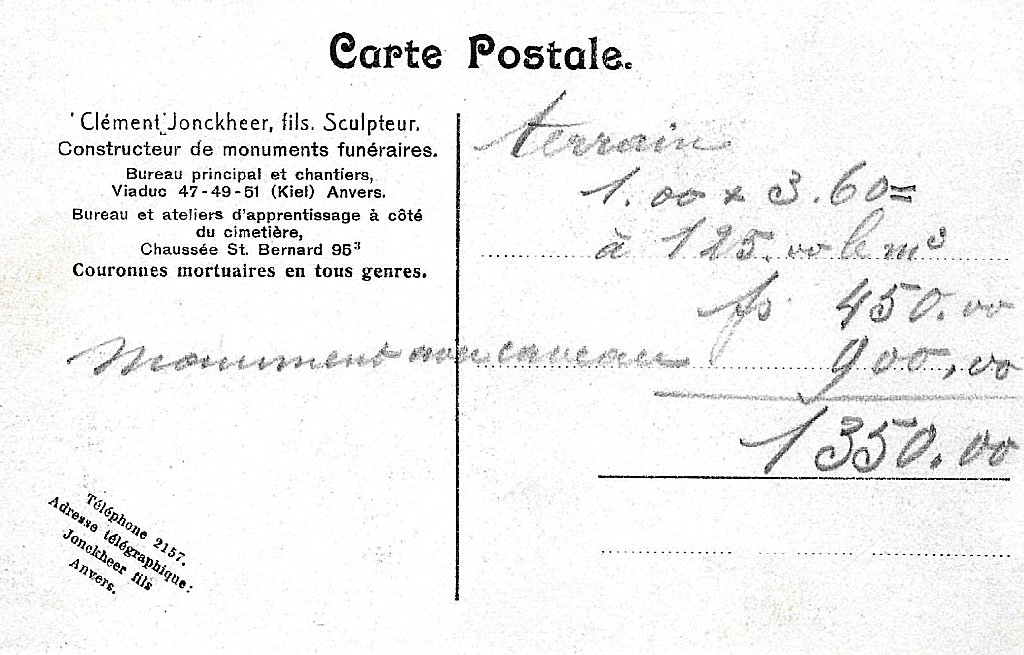 Carte Postale.
Clément Jonckheer, fils. Sculpteur.
Constructeur de monuments funéraires.
Bureau principal et chantiers,
Viaduc 47-49-51 (Kiel) Anvers.
Bureau et ateliers d'apprentissage à côté
du cimetière,
Chaussée St. Bernard 95³
Couronnes mortuaires en tous genres.
Téléphone 2157.
Adresse télégraphique:
Jonckheer fils
Anvers.
terrain
1.00 x 3.60=
à 125.00 le m³
fs 450.00
Monument avec caveau 900,00
1350.00